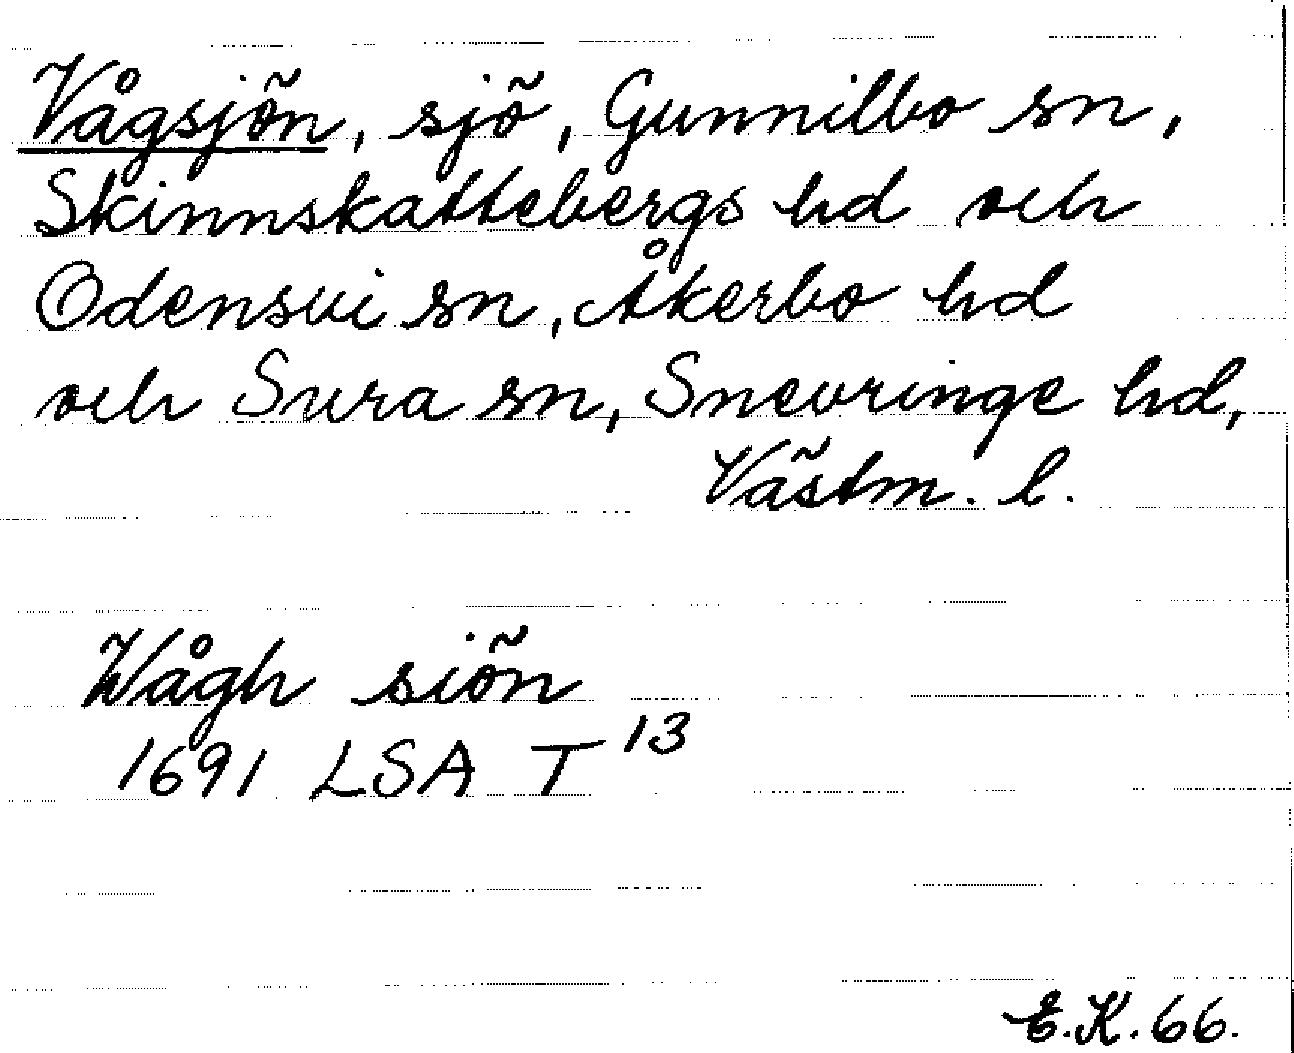 Vågsjön, sjö, Gunnilbo sn,
Skinnskattebergs hd och
Odensvi sn, Åkerbo hd
och Sura sn, Snevringe hd,
Västm. l.
Wågh siön
1691 LSA T 13
E.K. 66.